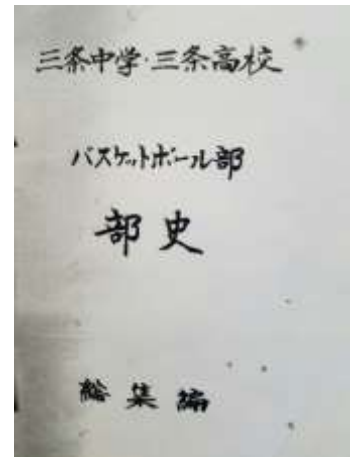 三条中学·三条高校
バスケットボール部
部史
総集編